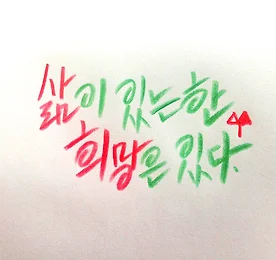 삶이 있는 한
희망은 있다.